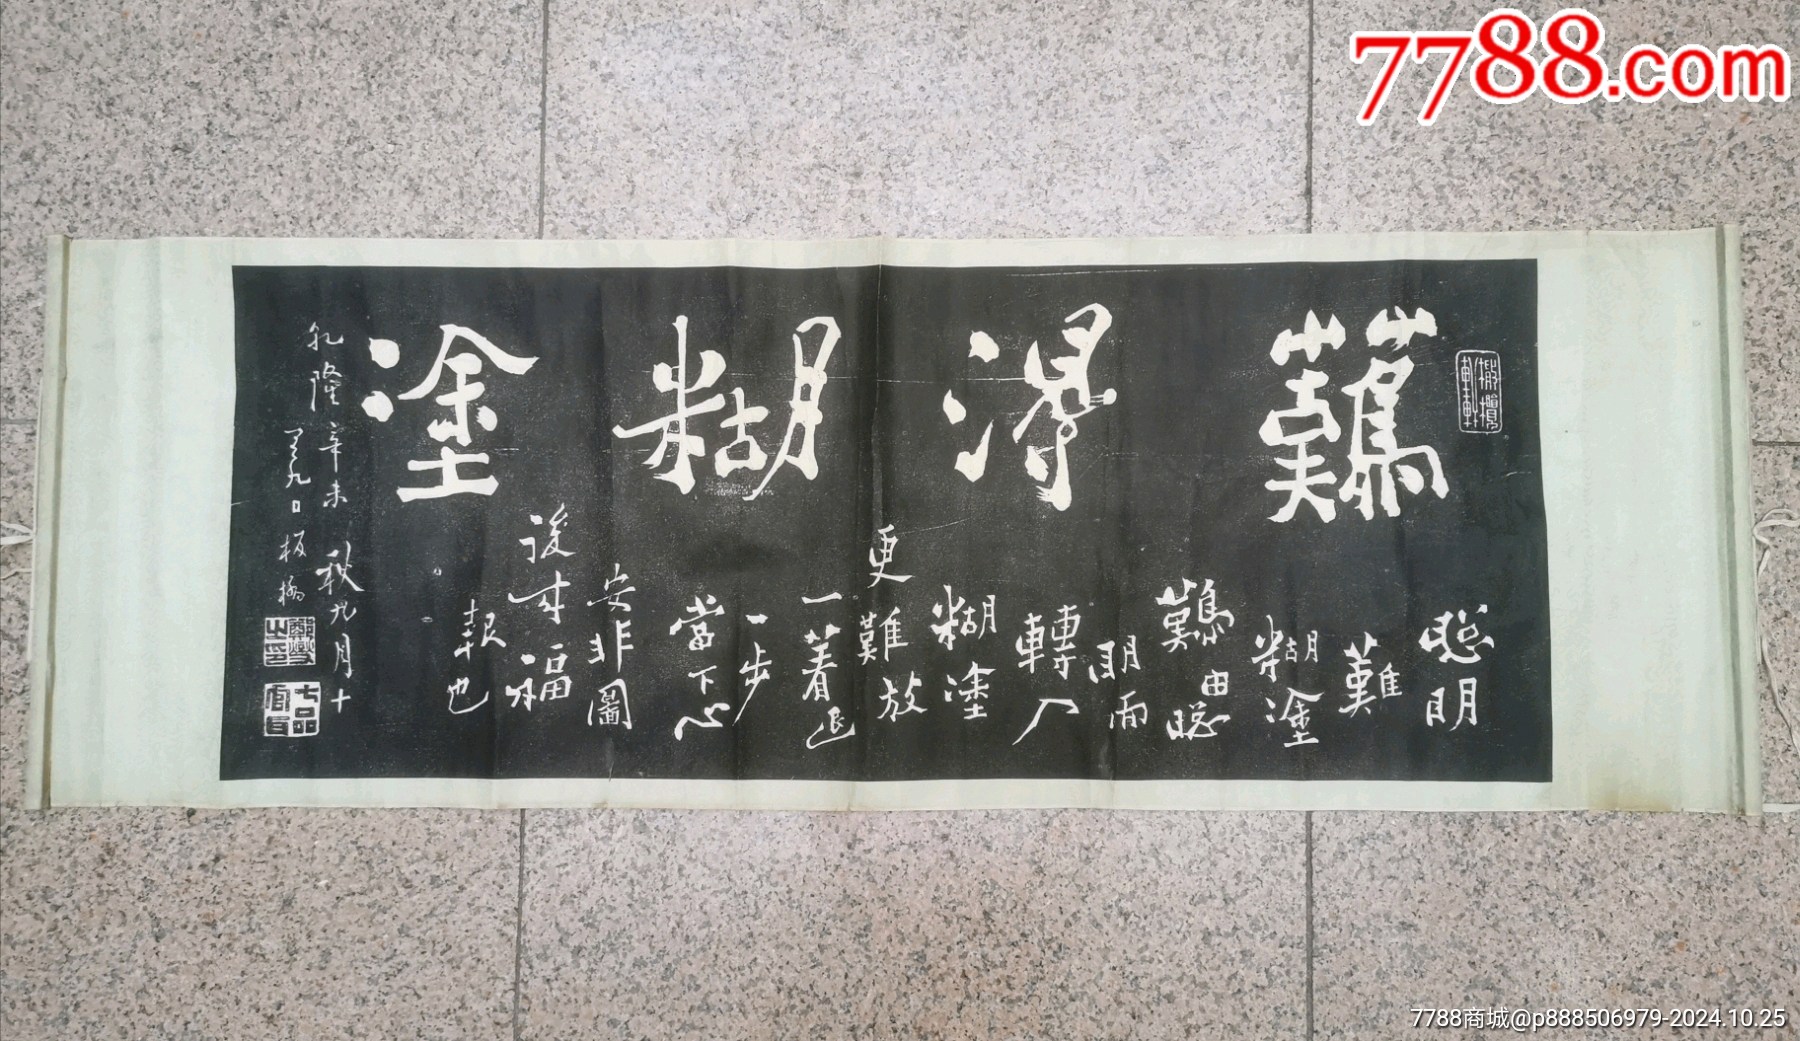 7788.com
橄欖軒
難得糊塗
聰明
難
糊塗
難由聰
明而
轉入
糊塗
更難放
一著退
一步
當下心
安非圖
後来福
報也
乾隆辛未秋九月十
有九日板橋
鄭燮之印
七品官耳
7788商城@p888506979-2024.10.25